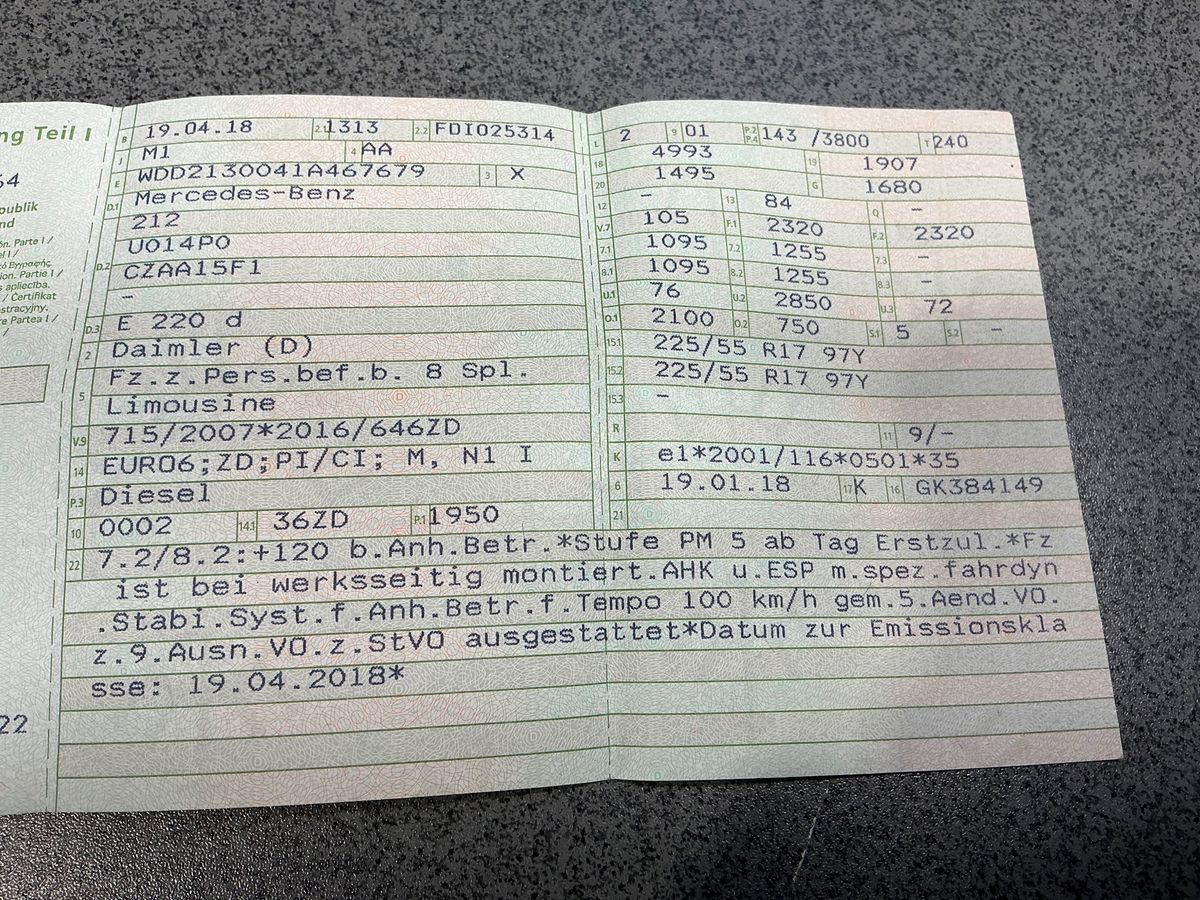 ng Teil I
64
publik
nd
ón. Parte I /
el I /
ion. Partie I /
s apliecība.
/ Certifikat
stracyjny.
re Partea I /
22
B 19.04.18 2.1 1313 2.2 FDI025314
J M1 4 AA
E WDD2130041A467679 3 X
D.1 Mercedes-Benz
212
D.2 U014P0
CZAA15F1
–
D.3 E 220 d
2 Daimler (D)
5 Fz.z.Pers.bef.b. 8 Spl.
Limousine
V.9 715/2007*2016/646ZD
14 EURO6;ZD;PI/CI; M, N1 I
P.3 Diesel
10 0002 14.1 36ZD P.1 1950
L 2 9 01 P.2 P.4 143 /3800 T 240
18 4993 19 1907
20 1495 G 1680
12 – 13 84 Q –
V.7 105 F.1 2320 F.2 2320
7.1 1095 7.2 1255 7.3 –
8.1 1095 8.2 1255 8.3 –
U.1 76 U.2 2850 U.3 72
O.1 2100 O.2 750 S.1 5 S.2 –
15.1 225/55 R17 97Y
15.2 225/55 R17 97Y
15.3 –
R 11 9/–
K e1*2001/116*0501*35
6 19.01.18 17 K 16 GK384149
21
22 7.2/8.2:+120 b.Anh.Betr.*Stufe PM 5 ab Tag Erstzul.*Fz
ist bei werksseitig montiert.AHK u.ESP m.spez.fahrdyn
.Stabi.Syst.f.Anh.Betr.f.Tempo 100 km/h gem.5.Aend.VO.
z.9.Ausn.VO.z.StVO ausgestattet*Datum zur Emissionskla
sse: 19.04.2018*